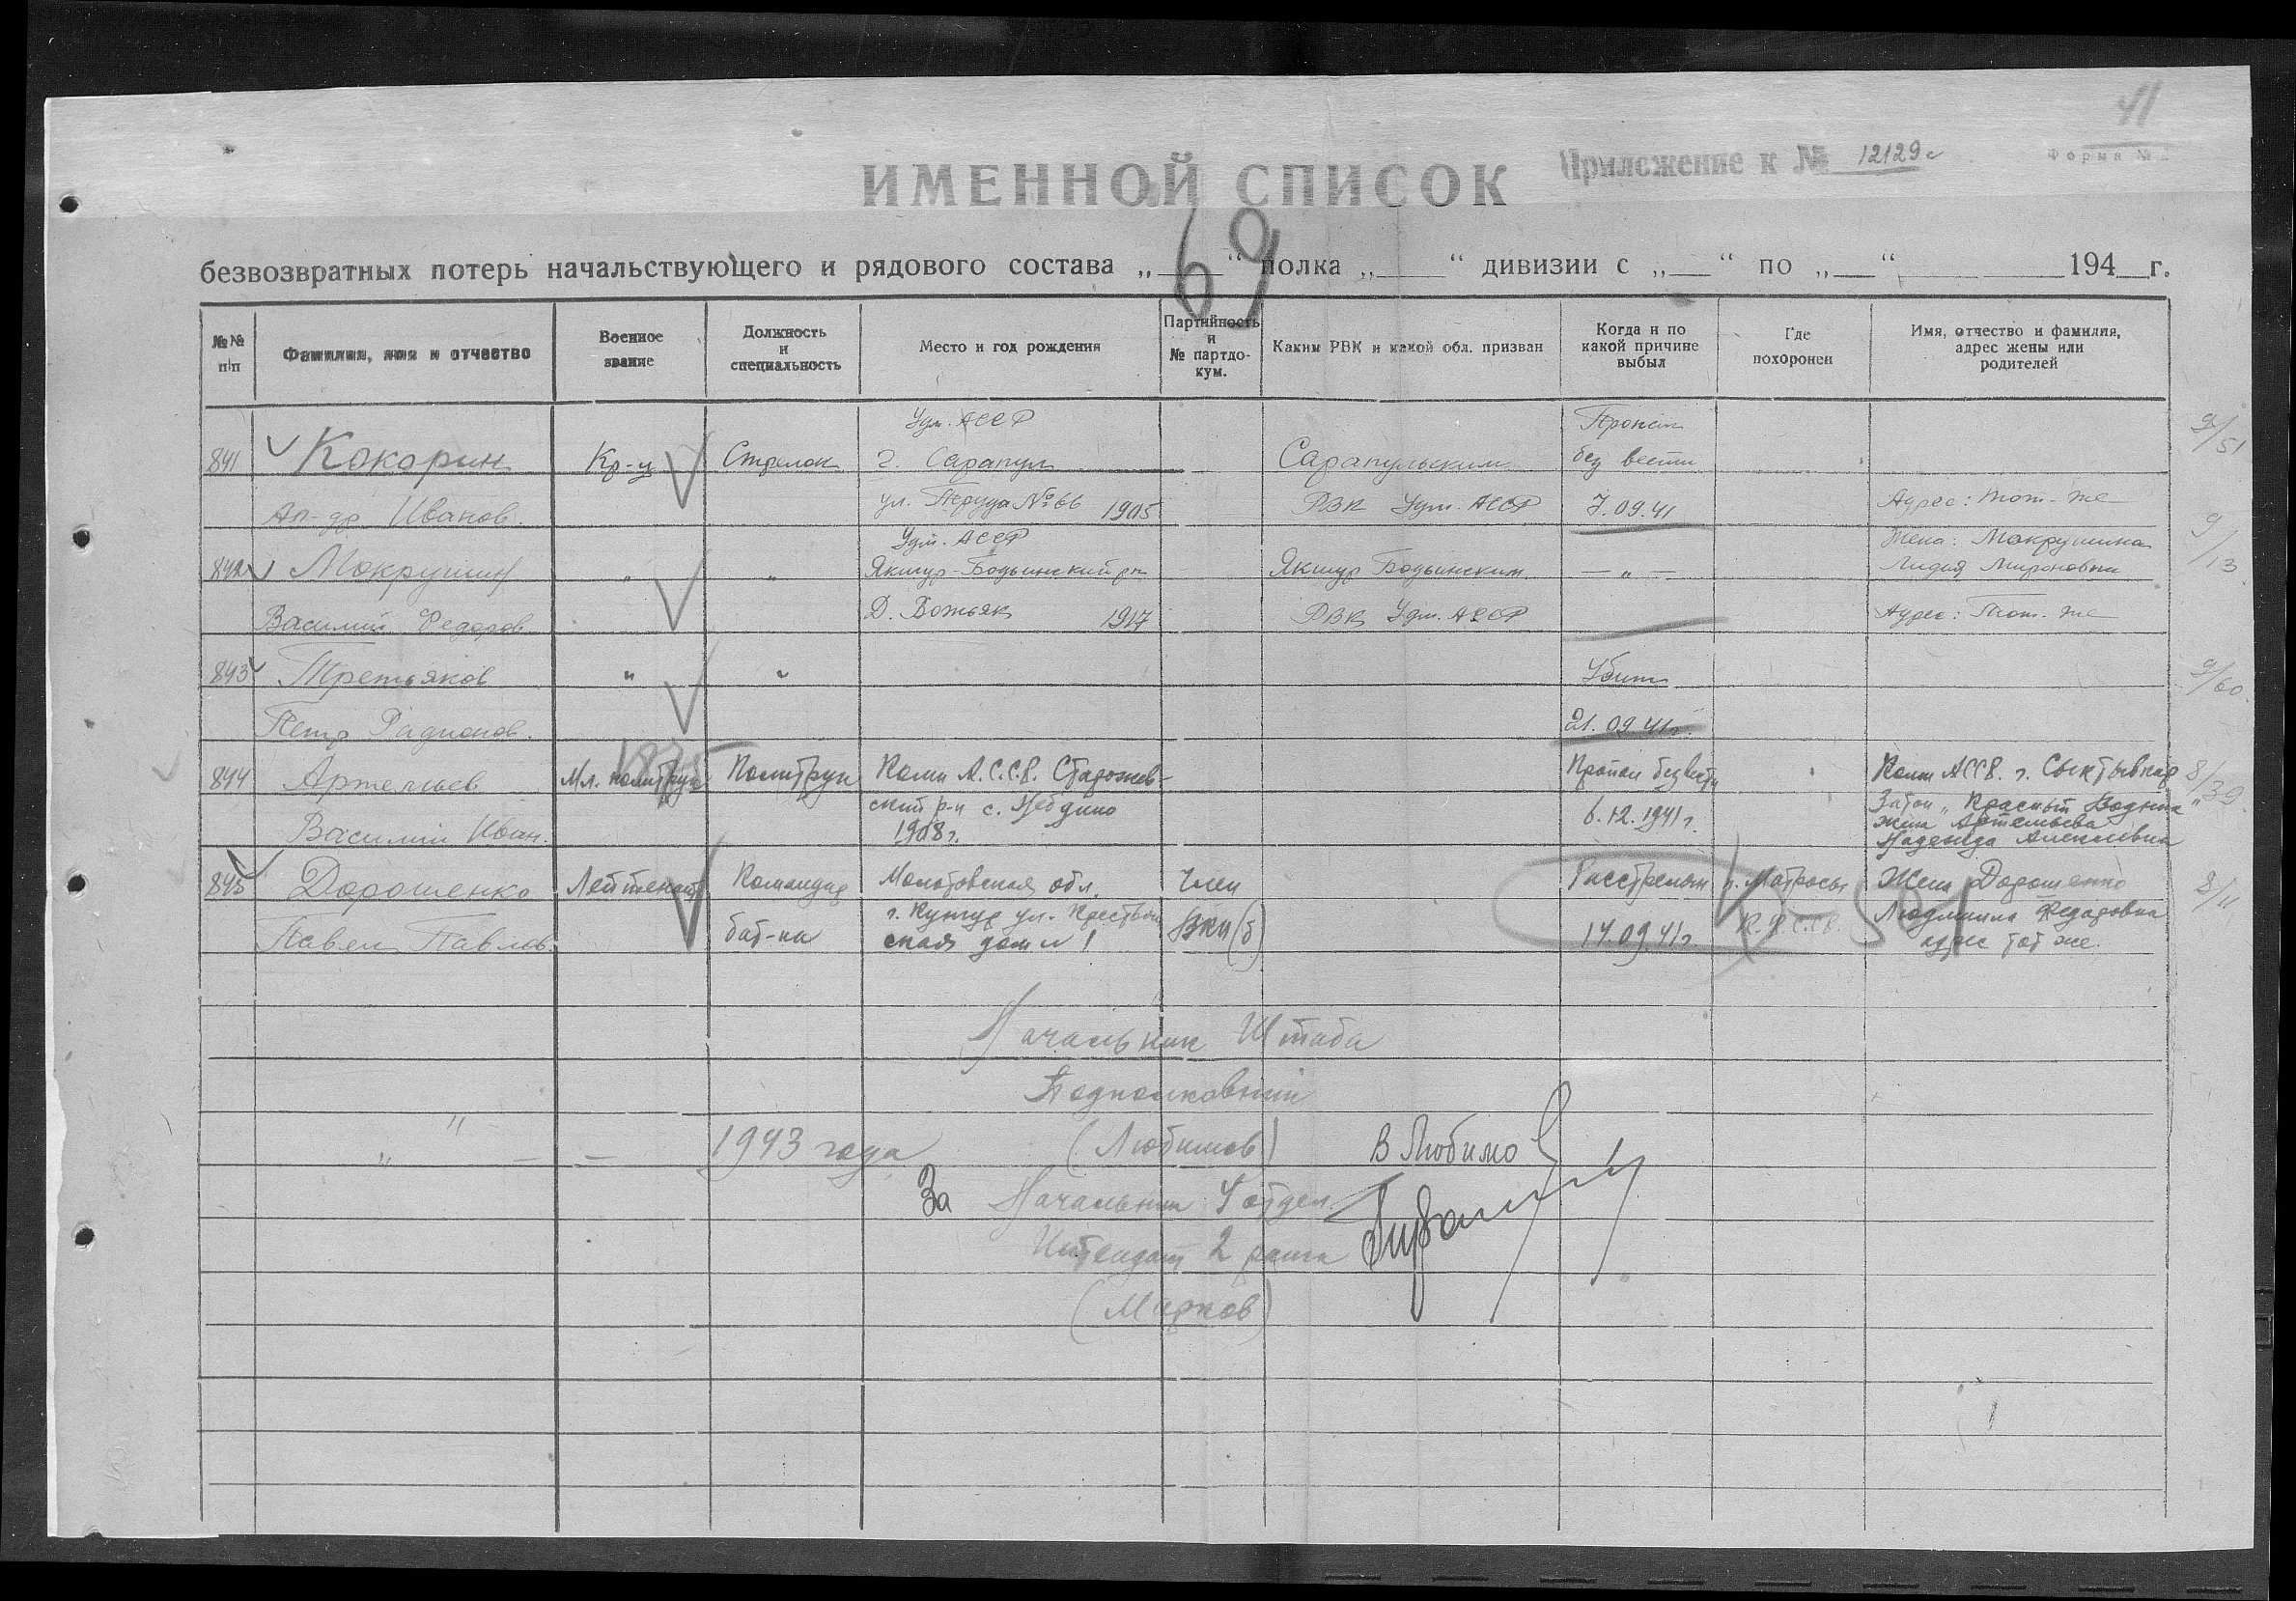 41
ИМЕННОЙ СПИСОК
Приложение к № 12129с
Форма №
безвозвратных потерь начальствующего и рядового состава „ “ полка „ “ дивизии с „ “ по „ “ 194 г.
69
№№ п/п
Фамилия, имя и отчество
Военное звание
Должность и специальность
Место и год рождения
Партийность и № партдокум.
Каким РВК и какой обл. призван
Когда и по какой причине выбыл
Где похоронен
Имя, отчество и фамилия, адрес жены или родителей
Удм. АССР Пропал
841 Кокорин Кр-ц Стрелок г. Сарапул Сарапульским без вести 9/51
Ал-др Иванов. ул. Труда № 66 1905 РВК Удм. АССР 7.09.41 Адрес: тот-же
Удм. АССР Жена: Мокрушина
842 Мокрушин " " Якшур-Бодьинский р-н Якшур Бодьинским — " — Лидия Мироновна 9/13
Василий Федоров Д. 1917 РВК Удм. АССР Адрес: Тот-же
843 Третьяков " " Убит 9/60
Петр Радионов. 21.09.41г.
844 Артемьев Мл. политрук Политрук Коми А.С.С.Р. Сторожев- Пропал без вести Коми АССР. г. Сыктывкар 8/39
Василий Иван. ский р-н с. Небдино 6.12.1941г. Затон „Красный Водник“
1908г. жена Артемьева
Надежда Алексеевна
845 Дорошенко Лейтенант Командир Молотовская обл. Член Расстрелян г. Матросы Жена Дорошенко 8/11
Павел Павлов. бат-на г. Кунгур ул. Крестьян ВКП(б) 14.09.41г. К.Ф.С.С.Р. Людмила Федоровна
ская дом № 1 адрес тот же.
Начальник Штаба
Подполковник
" — — 1943 года (Любимов) В Любимов
За Начальник 4 отдел.
Интендант 2 ранга
(Марков)